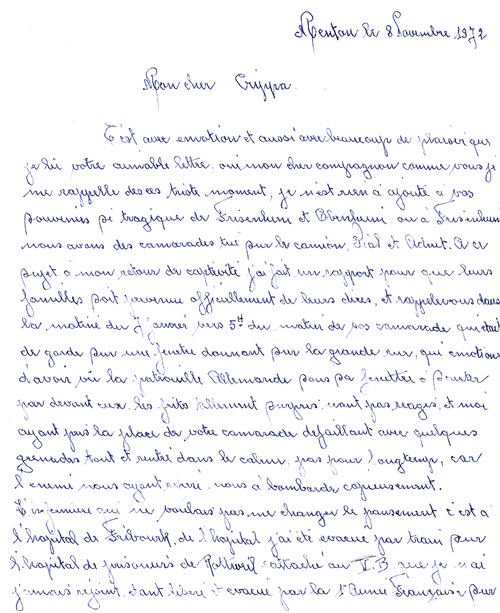 Menton le 8 Novembre 1972
Mon cher Crippa
C'est avec emotion et aussi avec beaucoup de plaisir que
je lu votre aimable lettre, oui mon cher compagnon comme vous je
me rappelle des ces triste moment, je n'est rien à ajouté à vos
souvenirs si tragique de Friesenheim et Obenheim, ou à Friesenheim
nous avons des camarades tué sur le camion, et A ce
sujet à mon retour de captivité j'ai fait un rapport pour que leurs
familles soit prevenue officiellement de leurs deces, et rappelez vous dans
la matiné du 7 janvier vers 5H du matin de vos camarade qui était
de garde sur une fenetre donnant sur la grande rue, qui emotions
d'avoir vü la patrouille Allemande sous sa fenettre à
par devant eux les frits n'ont pas reagis, et moi
ayant pris la place de votre camarade defaillant avec quelques
grenades tout et rentré dans le calme, pas pour longtemp, car
l'enemi nous ayant nous à bombardé copieusement.
L'infirmiere qui ne voulais pas me changer le pansement c'est à
l'hopital de Fribourk, de l'hopital j'ai été evacué par train sur
l'hopital de prisoniers de Rottweil attaché au V.B que je n'ai
jamais rejoint, étant liberé et evacué par la 1° Armé Française sur